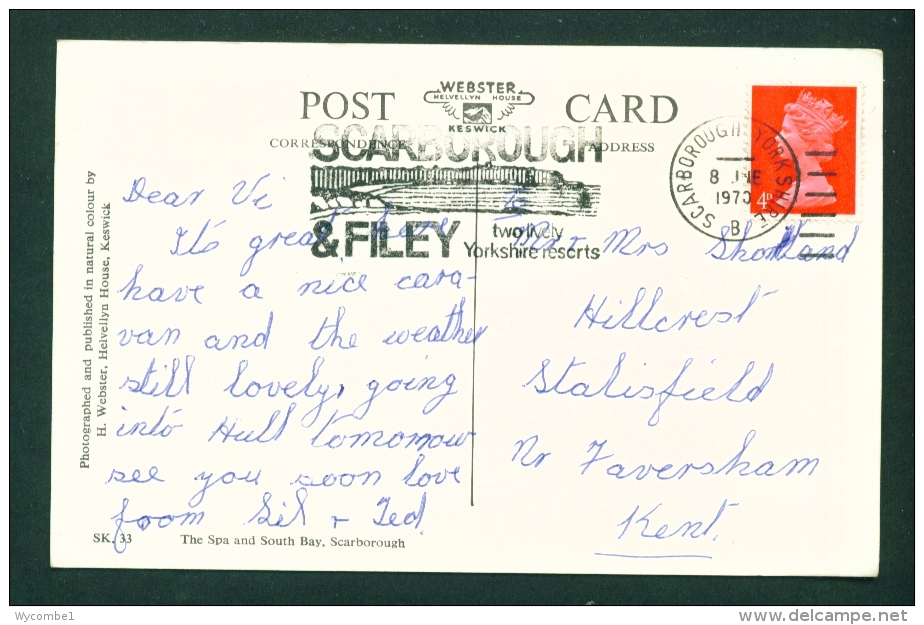 POST CARD
WEBSTER
HELVELLYN HOUSE
KESWICK
CORRESPONDENCE
ADDRESS
SCARBOROUGH
& FILEY
two lively
Yorkshire resorts
SCARBOROUGH YORKSHIRE
8 JNE
1970
B
4D
Dear Vi
It's great here
have a nice cara-
van and the weather
still lovely, going
into Hull tomorrow
see you soon love
from Sil + Ted.
To
Mr + Mrs Shortland
Hillcrest
Stalisfield
Nr Faversham
Kent.
Photographed and published in natural colour by
H. Webster, Helvellyn House, Keswick
SK. 33 The Spa and South Bay, Scarborough
Wycombe1
www.delcampe.net